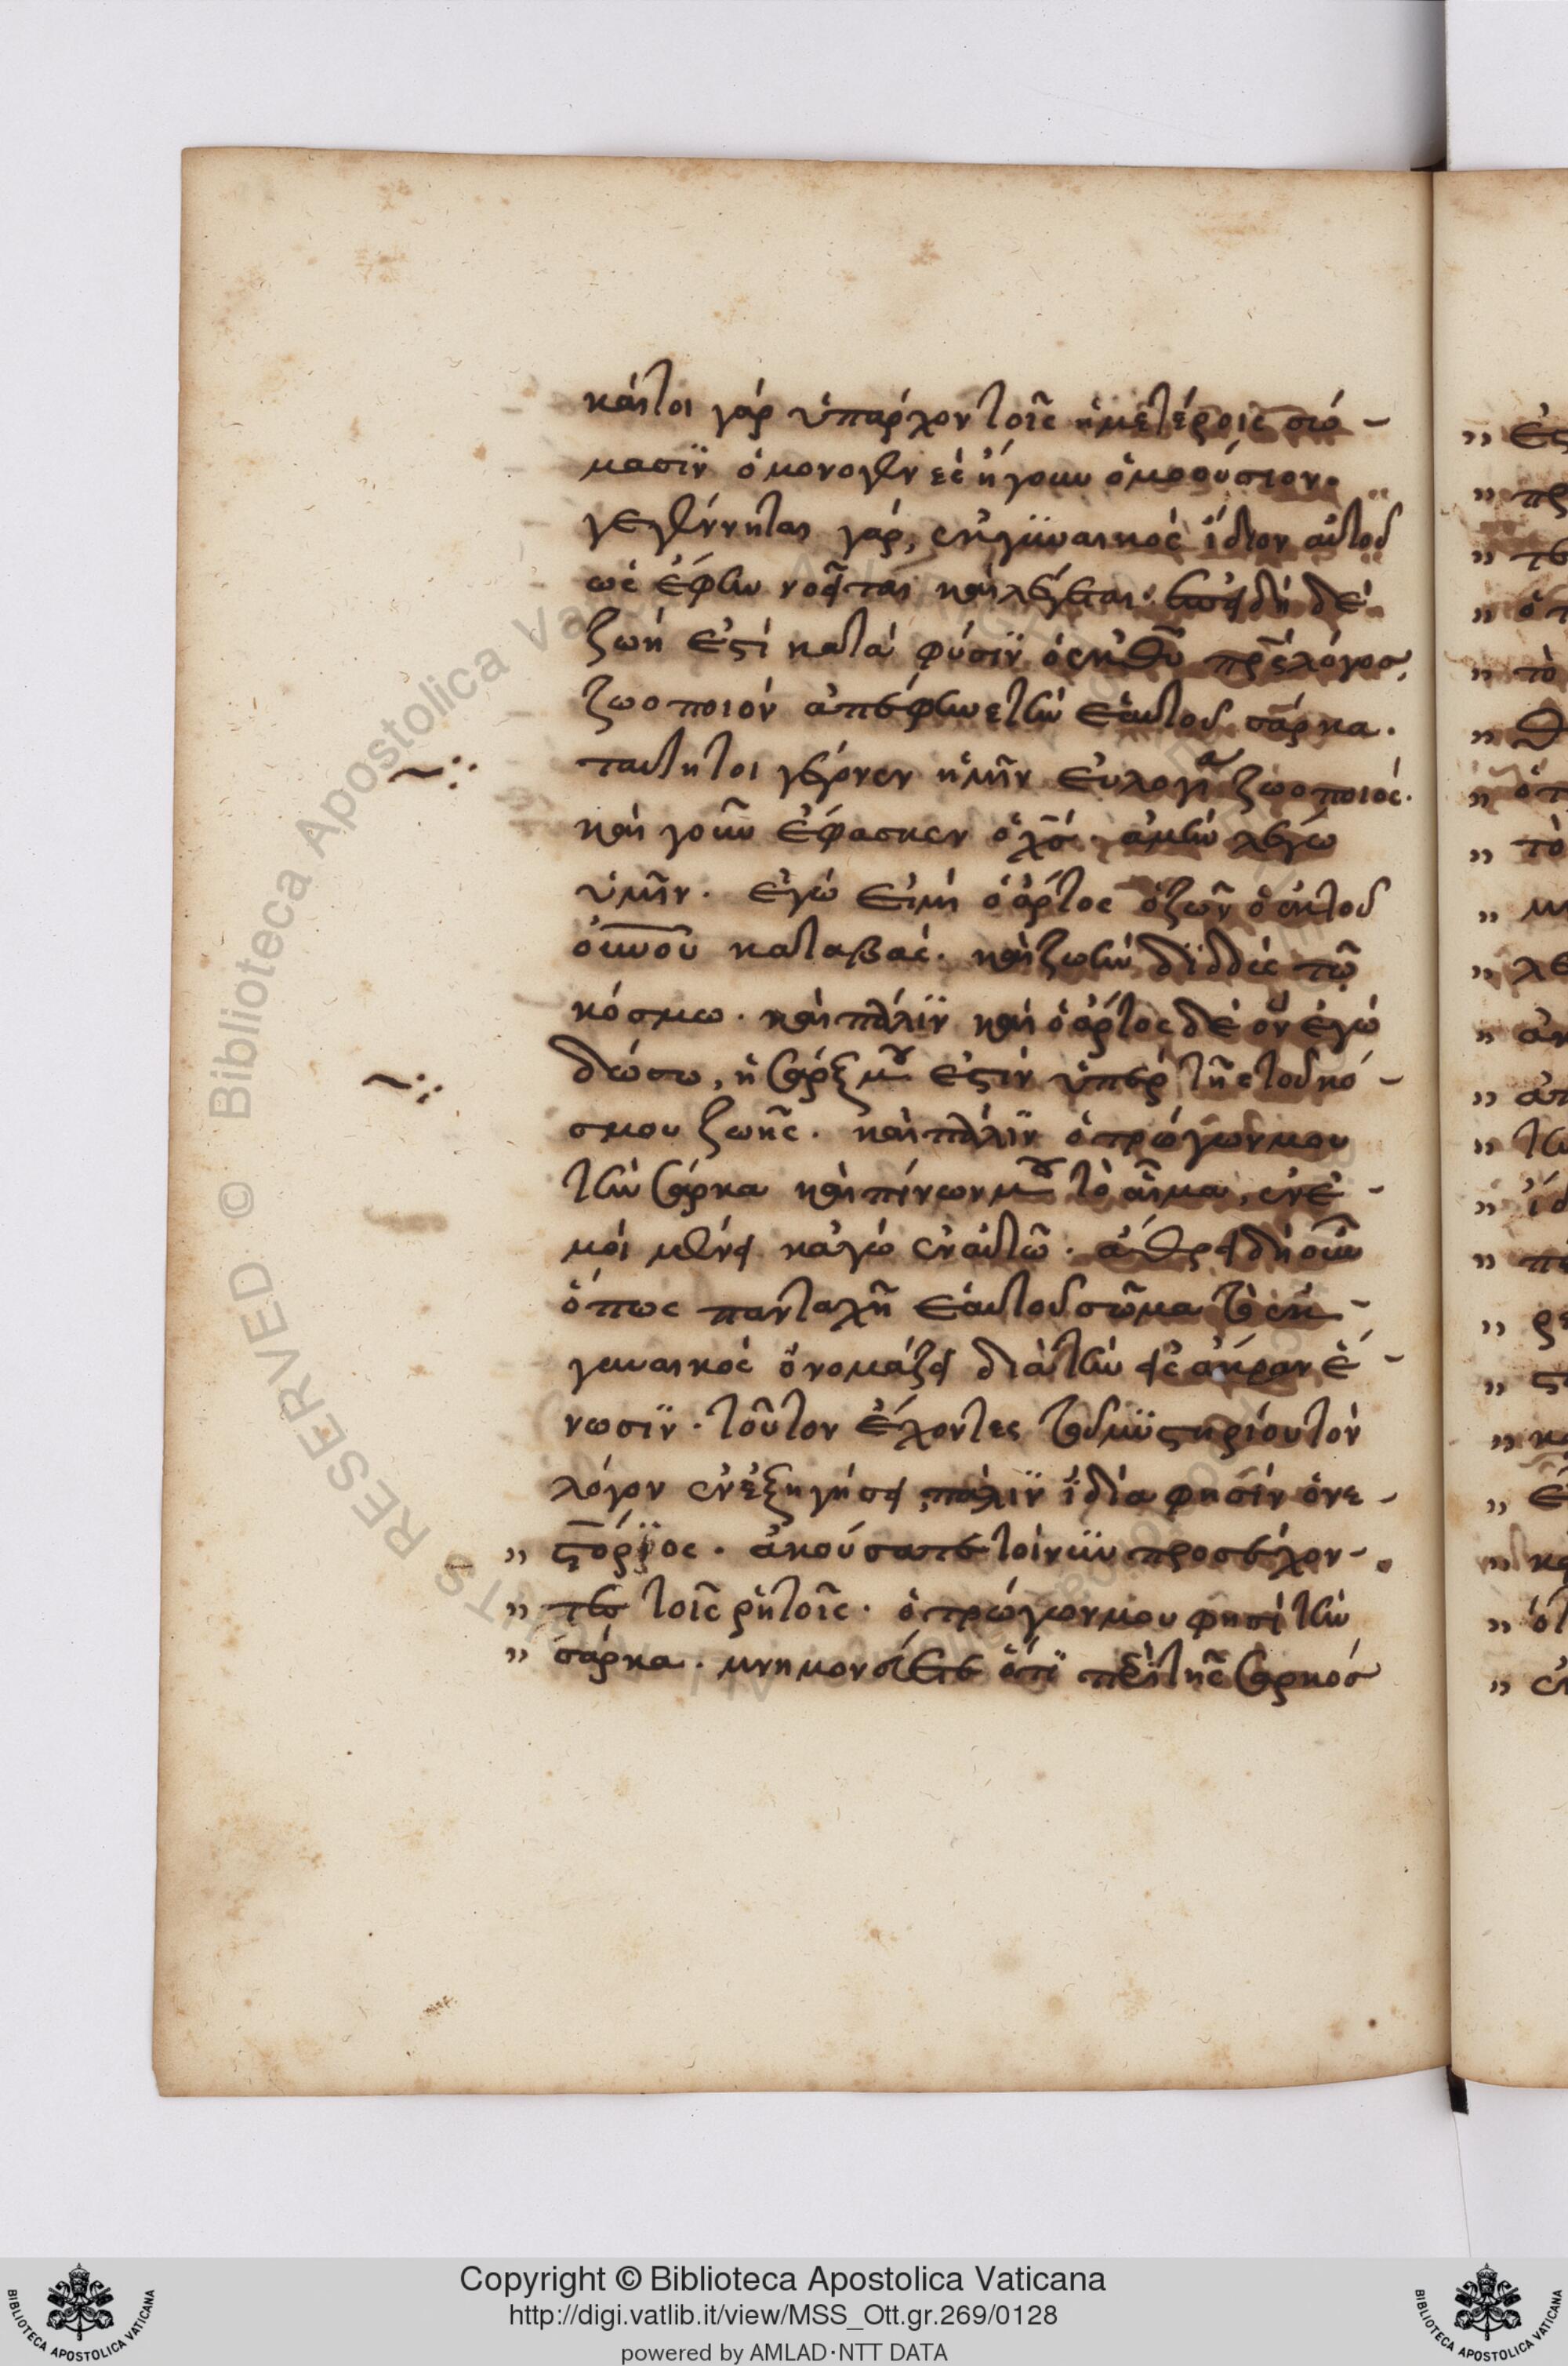 καίτοι γὰρ ὑπάρχον τοῖς ἡμετέροις σώ-
μασϊν ὁμογενὲς ἤγουν ὁμοούσιον.
γεγέννηται γάρ, ἐκ γϋναικὸς ἴδιον αὐτοῦ
ὡς ἔφην νοεῖται καὶ λέγεται. ἐπειδὴ δὲ
ζωή ἐστὶ κατὰ φύσϊν ὁ ἐκ θῦ πρς λόγοσ,
ζωοποιὸν ἀπέφηνε τὴν ἑαυτοῦ σάρκα.
ταύτητοι γέγονεν ἡμῖν εὐλογία ζωοποιός.
καὶ γοῦν ἔφασκεν ὁ χς. ἀμὴν λέγω
ὑμῖν. ἐγώ εἰμι ὁ ἄρτος ὁ ζῶν ὁ ἐκ τοῦ
οὐνοῦ καταβάς. καὶ ζωὴν δϊδοὺς τῶ
κόσμω. καὶ πάλϊν καὶ ὁ ἄρτος δὲ ὃν ἐγὼ
δώσω, ἡ σάρξ μου ἐστὶν ὑπὲρ τῆς τοῦ κό-
σμου ζωῆς. καὶ πάλϊν ὁ τρώγων μου
τὴν σάρκα καὶ πίνων μου τὸ αἷμα, ἐν ἐ-
μοὶ μένει κἀγὼ ἐν αὐτῶ. ἄθρει δὴ οὖν
ὅπως πανταχῆ ἑαυτοῦ σῶμα τὸ ἐκ
γυναικὸς ὀνομάζει διὰ τὴν εἰς ἄκραν ἕ-
νωσϊν. τοῦτον ἔχοντες τοῦ μϋστηρίου τὸν
λόγον ἐνεξηγήσει, πάλϊν ἰδία φησὶν ὁ νε-
„ στόρϊος. ἀκούσατε τοίνϋν προσέχον-
„ τες τοῖς ῥητοῖς. ὁ τρώγων μου φησὶ τὴν
„ σάρκα. μνημονεύετε ὅτϊ περὶ τῆς σαρκόσ